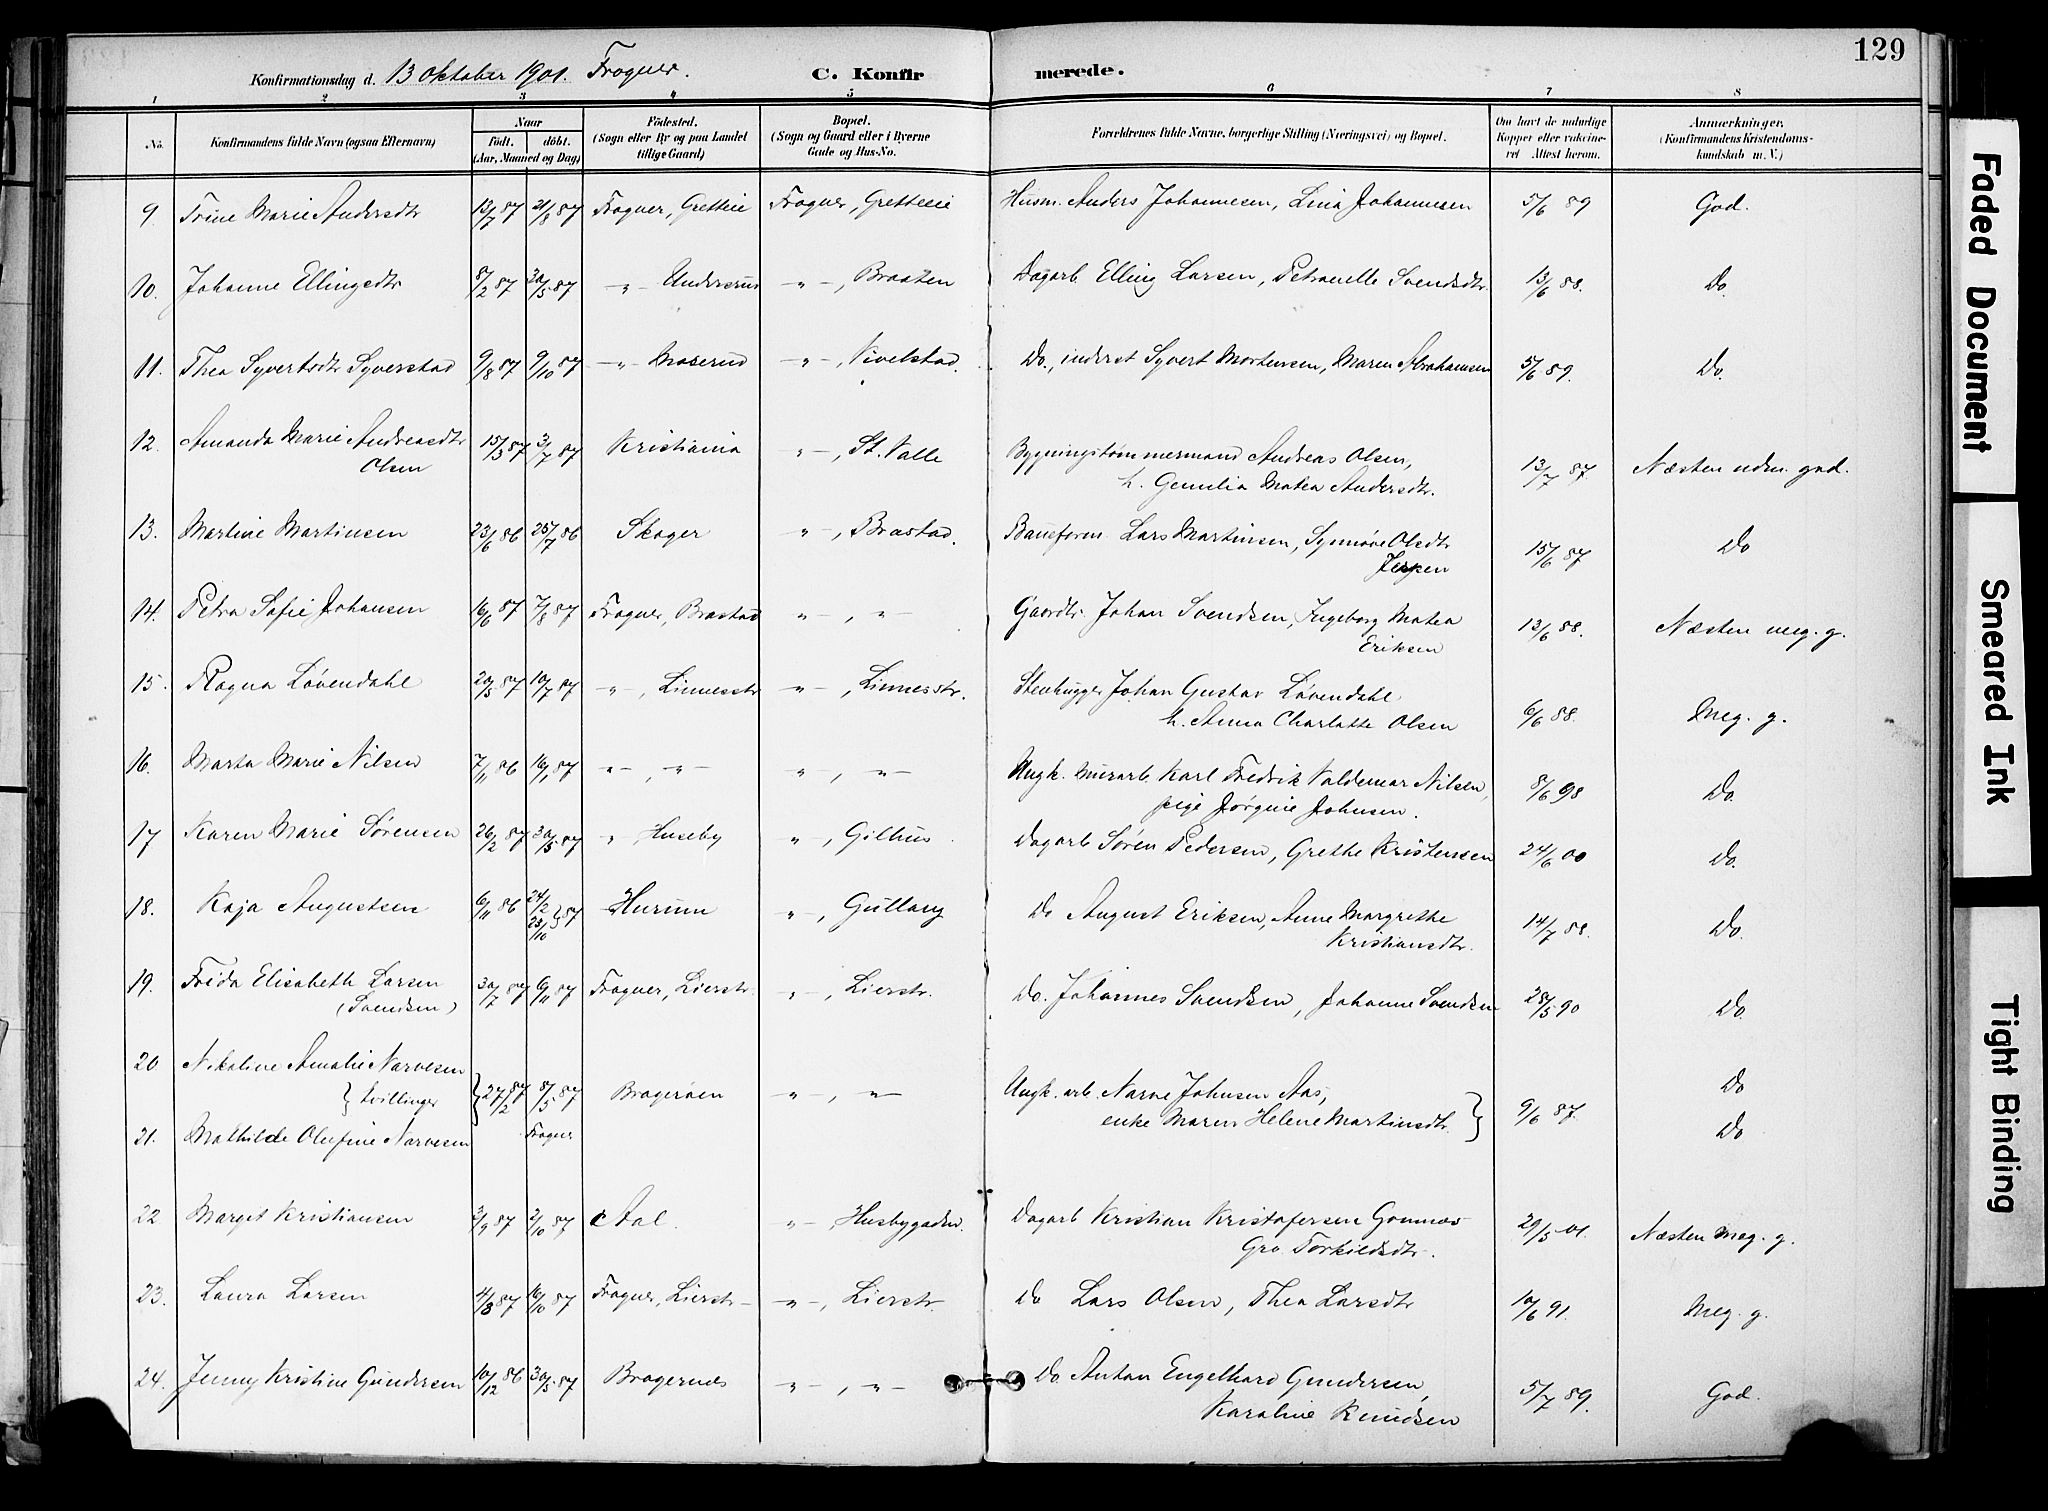 129
Konfirmationsdag d. 13 Oktober 1901. Frogner. C. Konfirmerede.
1 2 3 4 5 6 7 8
No. Konfirmandens fulde Navn (ogsaa Efternavn) Naar født. døbt. (Aar, Maaned og Dag) Fødested. (Sogn eller By og paa Landet tillige Gaard) Bopæl. (Sogn og Gaard eller i Byerne Gade og Hus-No. Forældrenes fulde Navne, borgerlige Stilling (Næringsvei) og Bopæl. Om havt de naturlige Kopper eller vaccineret Attest herom. Anmærkninger. (Konfirmandens Kristendomskundskab m. V.)
9. Trine Marie Andersdtr 13/7 87 21/8 87 Frogner, Gretteie Frogner, Gretteeie Husm. Anders Johannesen, Lina Johannesen 5/6 89 God.
10. Johanne Ellingsdtr 8/2 87 30/5 87 -"- Undersrud -"-, Braaten Dagarb. Elling Larsen, Petronelle Svendsdtr. 13/6 88. Do.
11. Thea Syvertsdtr Syverstad 9/8 87 9/10 87 -"- Moserud -"-, Vivelstad. Do., inderst Syvert Mortensen, Maren Abrahamsen 5/6 89. Do.
12. Amanda Marie Andreasdtr 15/3 87 3/7 87 Kristiania -"-, St. Valle Bygningstømmermand Andreas Olsen, 13/7 87. Næsten udm. god.
Olsen h. Gemilia Matea Andersdtr.
13. Martine Martinsen 23/6 86 25/7 86 Skoger -"-, Brastad. Baneform. Lars Martinsen, Synnøve Olsdtr 15/6 87 Do
Jerpen
14. Petra Sofie Johansen 16/6 87 7/8 87 Frogner, Brastad -"-, " - Gaardbr. Johan Svendsen, Ingeborg Matea 13/6 88. Næsten meg. g.
Eriksen
15. Ragna Løvendahl 20/5 87 10/7 87 -"-, Linnesstr -"-, Linnesstr. Stenhugger Johan Gustav Løvendahl 6/6 88. Meg. g.
h. Anna Charlotte Olsen
16. Marta Marie Nilsen 7/11 86 16/1 87 -"-, -"- ", -"- Ungk. murarb. Karl Fredrik Valdemar Nilsen, 8/6 98 Do.
pige Jørgine Johnsen.
17 Karen Marie Sørensen 26/2 87 30/5 87 ", Huseby ", Gilhus. Dagarb Søren Pedersen, Grethe Kristensen 24/6 00 Do.
18. Kaja Augustsen 6/11 86 24/2 23/10 } 87 Hurum ", Gullaug Do August Eriksen, Anne Margrethe 14/7 88. Do.
Kristiansdtr.
19. Frida Elisabeth Larsen 30/7 87 6/11 87 Frogner, Lierstr. ", Lierstr. Do. Johannes Svendsen, Johanne Svendsen 28/5 90 Do.
(Svendsen)
20 Nikoline Amalie Narvesen Do
} tvillinger } 27/2 87 8/5 87 Bragerøen -"-, -"- Ungk. arb. Narve Johnsen Aas, } 9/6 87.
Frogner enke Maren Helene Martinsdtr.
21. Mathilde Olufine Narvesen Do
22 Margit Kristiansen 3/9 87 2/10 87 Aal. -"-, Husbygaden. Dagarb Kristian Kristofersen 29/5 01. Næsten Meg. g.
Gro Torkildsdtr.
23. Laura Larsen 4/8 87 16/10 87 Frogner, Lierstr -"-, Lierstr. Do Lars Olsen, Thea Larsdtr 10/6 91. Meg. g.
24. Jenny Kristine Gundersen 10/12 86 30/5 87 Bragernes -"-, -"- Do. Anton Engelhard Gundersen, 5/7 89. God.
Karoline Knudsen
Faded Document
Smeared Ink
Tight Binding